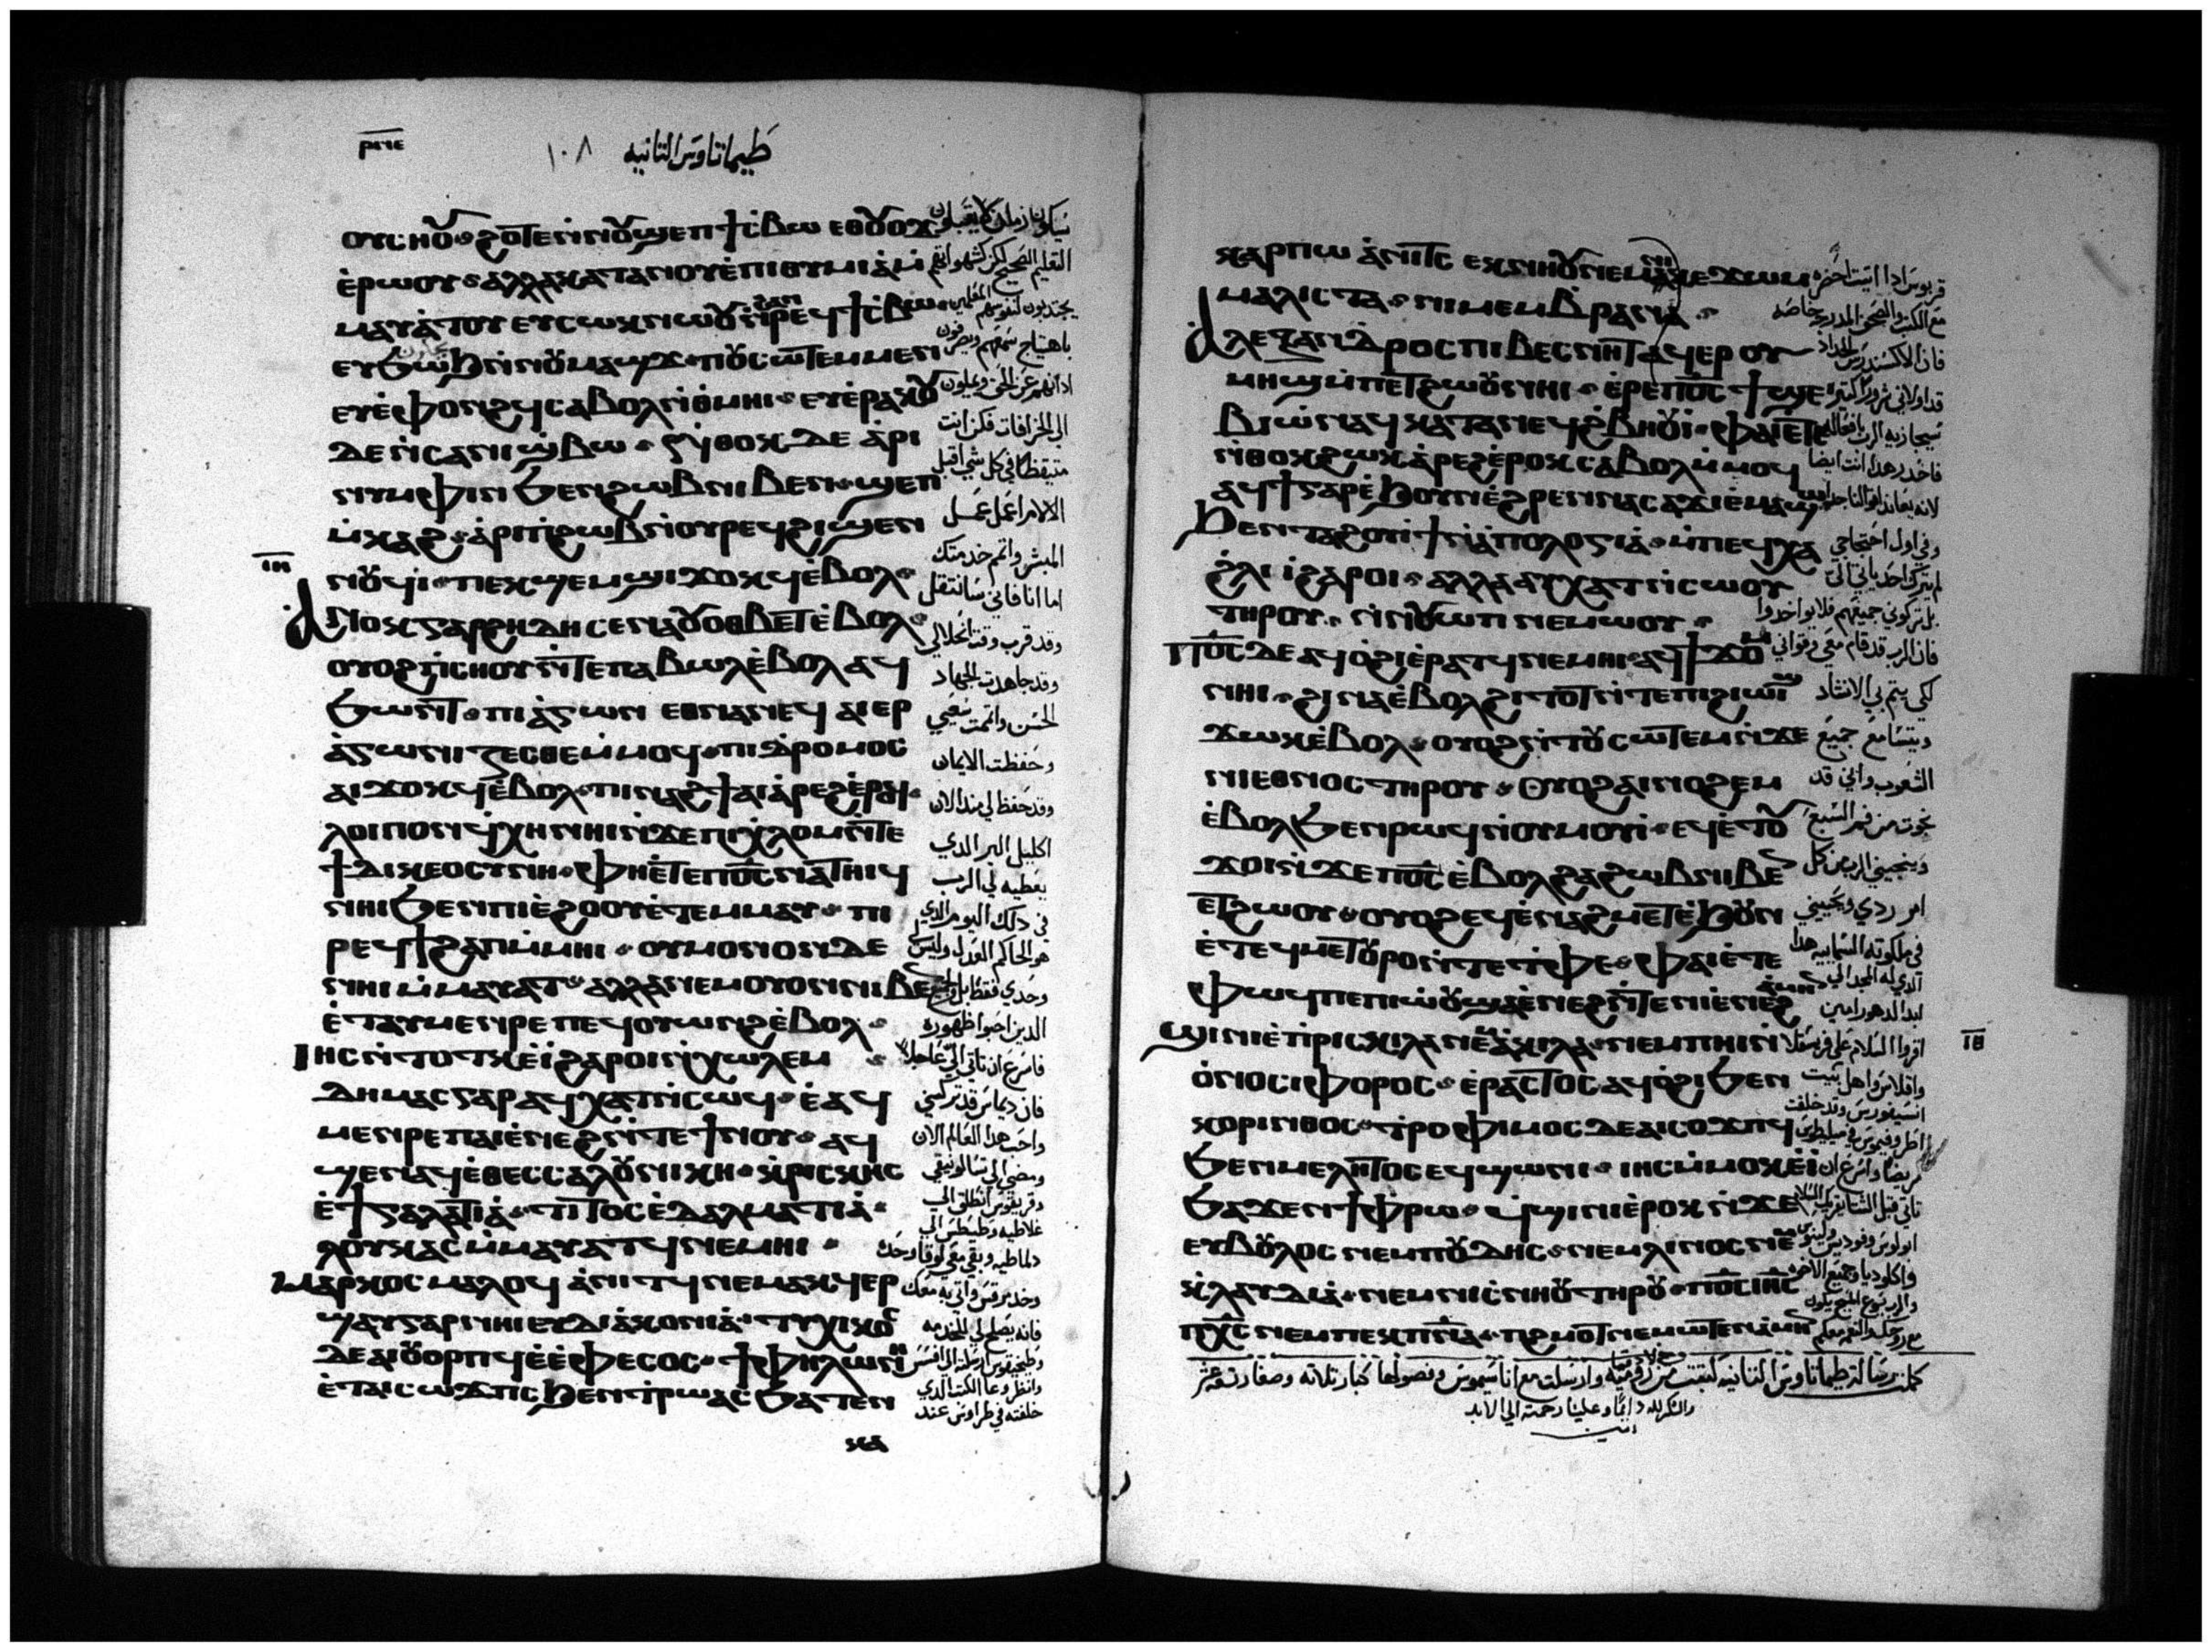 ⲣⲛⲉ
طيماتاوس التانيه ١٠٨
ⲟⲩⲥⲏⲟⲩ ϩⲟⲧⲉ ⲛⲛⲟⲩϣⲉⲡ ϯⲥⲃⲱ ⲉⲑⲟⲩⲟϫ
ⲉⲣⲱⲟⲩ ⲁⲗⲗⲁ ⲕⲁⲧⲁ ⲛⲟⲩⲉⲡⲓⲑⲩⲙⲓⲁ ⲙ
ⲙⲁⲩⲁⲧⲟⲩ ⲉⲩⲥⲱⲕ ⲛⲱⲟⲩ ⲛϩⲁⲛⲣⲉϥϯⲥⲃⲱ
ⲉⲩϧⲱϧ ⲛⲛⲟⲩⲙⲁϣϫ ⲡⲟⲩⲥⲱⲧⲉⲙ ⲙⲉⲛ
ⲉⲩⲉⲫⲟⲛϩϥ ⲥⲁⲃⲟⲗ ⲛⲑⲙⲏⲓ ⲉⲩⲉⲣⲁⲕⲟⲩ
ⲇⲉ ⲛⲥⲁ ⲛⲓϣⲃⲱ ⲛⲑⲟⲕ ⲇⲉ ⲁⲣⲓ
ⲛⲩⲙⲫⲓⲛ ϧⲉⲛ ϩⲱⲃ ⲛⲓⲃⲉⲛ ϣⲉⲡ
ⲙⲕⲁϩ ⲁⲣⲓ ⲡϩⲱⲃ ⲛⲟⲩⲣⲉϥϩⲓϣⲉⲛ
ⲛⲟⲩϥⲓ ⲡⲉⲕϣⲉⲙϣⲓ ϫⲟⲕϥ ⲉⲃⲟⲗ
ⲁⲛⲟⲕ ⲅⲁⲣ ϩⲏⲇⲏ ⲥⲉⲛⲁⲟⲩⲟⲑⲃⲉⲧ ⲉⲃⲟⲗ
ⲟⲩⲟϩ ⲡⲥⲏⲟⲩ ⲛⲧⲉ ⲡⲁⲃⲱⲗ ⲉⲃⲟⲗ ⲁϥ
ϧⲱⲛⲧ ⲡⲓⲁⲅⲱⲛ ⲉⲑⲛⲁⲛⲉϥ ⲁⲓⲉⲣ
ⲁⲅⲱⲛⲓⲍⲉⲥⲑⲉ ⲙⲙⲟϥ ⲡⲓⲇⲣⲟⲙⲟⲥ
ⲁⲓϫⲟⲕϥ ⲉⲃⲟⲗ ⲡⲓⲛⲁϩϯ ⲁⲓⲁⲣⲉϩ ⲉⲣⲟϥ
ⲗⲟⲓⲡⲟⲛ ϥⲭⲏ ⲛⲏⲓ ⲛϫⲉ ⲡⲓⲭⲗⲟⲙ ⲛⲧⲉ
ϯⲇⲓⲕⲉⲟⲥⲩⲛⲏ ⲫⲏ ⲉⲧⲉ ⲡⲟⲥ ⲛⲁⲧⲏⲓϥ
ⲛⲏⲓ ϧⲉⲛ ⲡⲓⲉϩⲟⲟⲩ ⲉⲧⲉⲙⲙⲁⲩ ⲡⲓ
ⲣⲉϥϯϩⲁⲡ ⲙⲙⲏⲓ ⲟⲩ ⲙⲟⲛⲟⲛ ⲇⲉ
ⲛⲏⲓ ⲙⲙⲁⲩⲁⲧ ⲁⲗⲗⲁ ⲛⲉⲙ ⲟⲩⲟⲛ ⲛⲓⲃⲉⲛ
ⲉⲧⲁⲩⲙⲉⲛⲣⲉ ⲡⲉϥⲟⲩⲱⲛϩ ⲉⲃⲟⲗ
ⲓⲏⲥ ⲛⲧⲟⲧⲕ ⲉⲓ ϩⲁⲣⲟⲓ ⲛⲭⲱⲗⲉⲙ
ⲇⲏⲙⲁⲥ ⲅⲁⲣ ⲁϥⲭⲁⲧ ⲛⲥⲱϥ ⲉⲁϥ
ⲙⲉⲛⲣⲉ ⲡⲁⲓⲉⲛⲉϩ ⲛⲧⲉ ϯⲛⲟⲩ ⲁϥ
ϣⲉ ⲛⲁϥ ⲉⲑⲉⲥⲥⲁⲗⲟⲩⲛⲓⲕⲏ ⲕⲣⲓⲥⲕⲏⲥ
ⲉϯⲅⲁⲗⲁⲧⲓⲁ ⲧⲓⲧⲟⲥ ⲉⲇⲁⲗⲙⲁⲧⲓⲁ
ⲗⲟⲩⲕⲁⲥ ⲙⲙⲁⲩⲁⲧϥ ⲛⲉⲙⲏⲓ
ⲙⲁⲣⲕⲟⲥ ⲙⲁⲗⲟϥ ⲁⲛⲓⲧϥ ⲛⲉⲙⲁⲕ ϥⲉⲣ
ϣⲁⲩ ⲅⲁⲣ ⲛⲏⲓ ⲉⲩⲇⲓⲁⲕⲟⲛⲓⲁ ⲧⲩⲭⲓⲕⲟⲥ
ⲇⲉ ⲁⲓⲟⲩⲟⲣⲡϥ ⲉⲉⲫⲉⲥⲟⲥ ϯⲫⲏⲗⲱⲛⲏ
ⲉⲧⲁⲓⲥⲱϫⲡⲥ ϧⲉⲛ ⲧⲣⲱⲁⲥ ϧⲁⲧⲉⲛ
ⲓⲏ
سيكون زمان لا يقبلون
التعليم الصحيح لكن كشهواتهم
يجتدبون لنفوسهم المعلمين
باهتياج سمعهم ويصرفون
ادانهم عن الحق ويميلون
الى الخرافات فكن انت
متيقظا في كل شي اقبل
الالام اعمل عمل
المبشر واتم خدمتك
اما انا فاني سانتقل
وقد قرب وقت انحلالي
وقد جاهدت الجهاد
الحسن واتممت سعيي
وحفظت الايمان
وقد حفظ لي مند الان
اكليل البر الدي
يعطيه لي الرب
في دلك اليوم الدي
هو الحاكم العدل وليس
وحدي فقط بل وجميع
الدين احبوا ظهوره
فاسرع ان تاتي الي عاجلا
فان ديماس قد تركني
واحب هدا العالم الان
ومضى الى تسالونيقي
وقريقوس انطلق الى
غلاطيه وطيطس الى
دلماطيه وبقي معي لوقا وحده
وخد مرقس واتي به معك
فانه يصلح لي للخدمه
وطيخيقوس ارسلته الى افسس
وانظر وعا الكتب الدي
خلفته في طراوس عند
ⲕⲁⲣⲡⲱ ⲁⲛⲓⲧⲥ ⲉⲕⲛⲏⲟⲩ ⲛⲉⲙ ⲛⲓⲕⲉϫⲱⲙ
ⲙⲁⲗⲓⲥⲧⲁ ⲛⲓⲙⲉⲙⲃⲣⲁⲛⲁ
ⲁⲗⲉⲝⲁⲛⲇⲣⲟⲥ ⲡⲓⲃⲉⲥⲛⲏⲧ ⲁϥⲉⲣ ⲟⲩ
ⲙⲏϣ ⲙⲡⲉⲧϩⲱⲟⲩ ⲛⲏⲓ ⲉⲣⲉ ⲡⲟⲥ ϯϣⲉ
ⲃⲓⲱ ⲛⲁϥ ⲕⲁⲧⲁ ⲛⲉϥϩⲃⲏⲟⲩⲓ ⲫⲁⲓ ⲉⲧⲉ
ⲛⲑⲟⲕ ϩⲱⲕ ⲁⲣⲉϩ ⲉⲣⲟⲕ ⲥⲁⲃⲟⲗ ⲙⲙⲟϥ
ⲁϥϯ ⲅⲁⲣ ⲉϧⲟⲩⲛ ⲉϩⲣⲉⲛ ⲛⲁⲥⲁϫⲓ ⲉⲙⲁϣⲱ
ϧⲉⲛ ⲧⲁϩⲟⲩϯ ⲛⲁⲡⲟⲗⲟⲅⲓⲁ ⲙⲡⲉϥⲭⲁ
ϩⲗⲓ ⲓ ϩⲁⲣⲟⲓ ⲁⲗⲗⲁ ⲁⲩⲭⲁⲧ ⲛⲥⲱⲟⲩ
ⲧⲏⲣⲟⲩ ⲛⲛⲟⲩⲱⲡ ⲛⲉⲙⲱⲟⲩ
ⲡⲟⲥ ⲇⲉ ⲁϥⲟϩⲓ ⲉⲣⲁⲧϥ ⲛⲉⲙⲏⲓ ⲁϥϯϫⲟⲙ
ⲛⲏⲓ ϩⲓⲛⲁ ⲉⲃⲟⲗ ϩⲓⲧⲟⲧ ⲛⲧⲉ ⲡⲓϩⲓⲱⲓϣ
ϫⲱⲕ ⲉⲃⲟⲗ ⲟⲩⲟϩ ⲛⲧⲟⲩⲥⲱⲧⲉⲙ ⲛϫⲉ
ⲛⲓⲉⲑⲛⲟⲥ ⲧⲏⲣⲟⲩ ⲟⲩⲟϩ ⲁⲓⲛⲟϩⲉⲙ
ⲉⲃⲟⲗ ϧⲉⲛ ⲣⲱϥ ⲛⲟⲩⲙⲟⲩⲓ ⲉϥⲉⲧⲟⲩ
ϫⲟⲓ ⲛϫⲉ ⲡⲟⲥ ⲉⲃⲟⲗ ϩⲁ ϩⲱⲃ ⲛⲓⲃⲉⲛ
ⲉⲧϩⲱⲟⲩ ⲟⲩⲟϩ ⲉϥⲉⲛⲁϩⲙⲉⲧ ⲉϧⲟⲩⲛ
ⲉⲧⲉϥⲙⲉⲧⲟⲩⲣⲟ ⲛⲧⲉ ⲧⲫⲉ ⲫⲁⲓ ⲉⲧⲉ
ⲫⲱϥ ⲡⲉ ⲡⲓⲱⲟⲩ ϣⲁ ⲉⲛⲉϩ ⲛⲧⲉ ⲛⲓⲉⲛⲉϩ ⲁⲙⲏⲛ
ϣⲓⲛⲓ ⲉⲡⲣⲓⲥⲕⲓⲗⲁ ⲛⲉⲙ ⲁⲕⲓⲗⲁ ⲛⲉⲙ ⲡⲏⲓ ⲛ
ⲟⲛⲟⲥⲓⲫⲟⲣⲟⲥ ⲉⲣⲁⲥⲧⲟⲥ ⲁϥⲟϩⲓ ϧⲉⲛ
ⲕⲟⲣⲓⲛⲑⲟⲥ ⲧⲣⲟⲫⲓⲙⲟⲥ ⲇⲉ ⲁⲓⲥⲟϫⲡϥ
ϧⲉⲛ ⲙⲉⲗⲏⲧⲟⲥ ⲉϥϣⲱⲛⲓ ⲓⲏⲥ ⲙⲙⲟⲕ ⲉⲓ
ϧⲁϫⲉⲛ ϯⲫⲣⲱ ϥϣⲓⲛⲓ ⲉⲣⲟⲕ ⲛϫⲉ
ⲉⲩⲃⲟⲩⲗⲟⲥ ⲛⲉⲙ ⲡⲟⲩⲇⲏⲥ ⲛⲉⲙ ⲗⲓⲛⲟⲥ ⲛⲉⲙ
ⲕⲗⲁⲩⲇⲓⲁ ⲛⲉⲙ ⲛⲓⲥⲛⲏⲟⲩ ⲧⲏⲣⲟⲩ ⲡⲟⲥ ⲓⲏⲥ
ⲡⲭⲥ ⲛⲉⲙ ⲡⲉⲕⲡⲛⲁ ⲡϩⲙⲟⲧ ⲛⲉⲙⲱⲧⲉⲛ ⲁⲙⲏⲛ
ⲓⲑ
قربوس ادا اتيت احضره
مع الكتب والصحف المدرجه خاصه
فان الاكسندرس الحداد
قد اولاني شرورا كتيره
سيجازيه الرب بافعاله
فاحدر هدا انت ايضا
وفي اول احتجاجي
لم يترك احد ياتي الي
بل تركوني جميعهم فلا يواخدوا
فان الرب قد قام معي وقواني
لكي يتم بي الاندار
ويتسامع جميع
الشعوب واني قد
نجوت من فم السبع
وينجيني الرب من كل
امر ردي ويحييني
في ملكوته السماييه هدا
الدي له المجد الى
ابد الدهور امين
اقروا السلام على فرسقلا
واقلاس واهل بيت
انسيفورس وقد خلفت
اطروفيموس في ميليطس
مريضا واسرع ان
تاتي قبل الشتا يقريك السلام
ابولوس وفوديس ولينوس
واكلوديا وجميع الاخوه
والرب يسوع المسيح يكون
مع روحك والنعمه معكم
كملت رساله طيماتاوس التانيه كتبت من روميه وارسلت مع اناسيموس وفصولها كبار تلاته وصغار تسعه عشر
والشكر لله دايما وعلينا رحمته الى الابد
امين